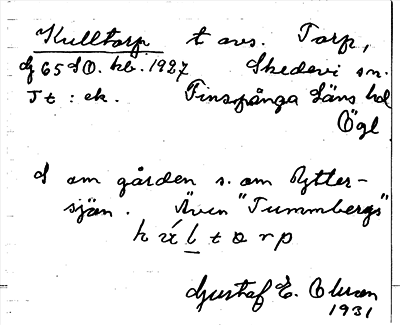 Kulltorp t avs. Torp,
dj 65 SO. kb. 1927 Skedevi sn.
Jt : ek. Finspånga läns hd
Ögl
S om gården s. om Ytter-
sjön. Även "Tummbergs"
k ú l t o r p
Gustaf E. Olsson
1931